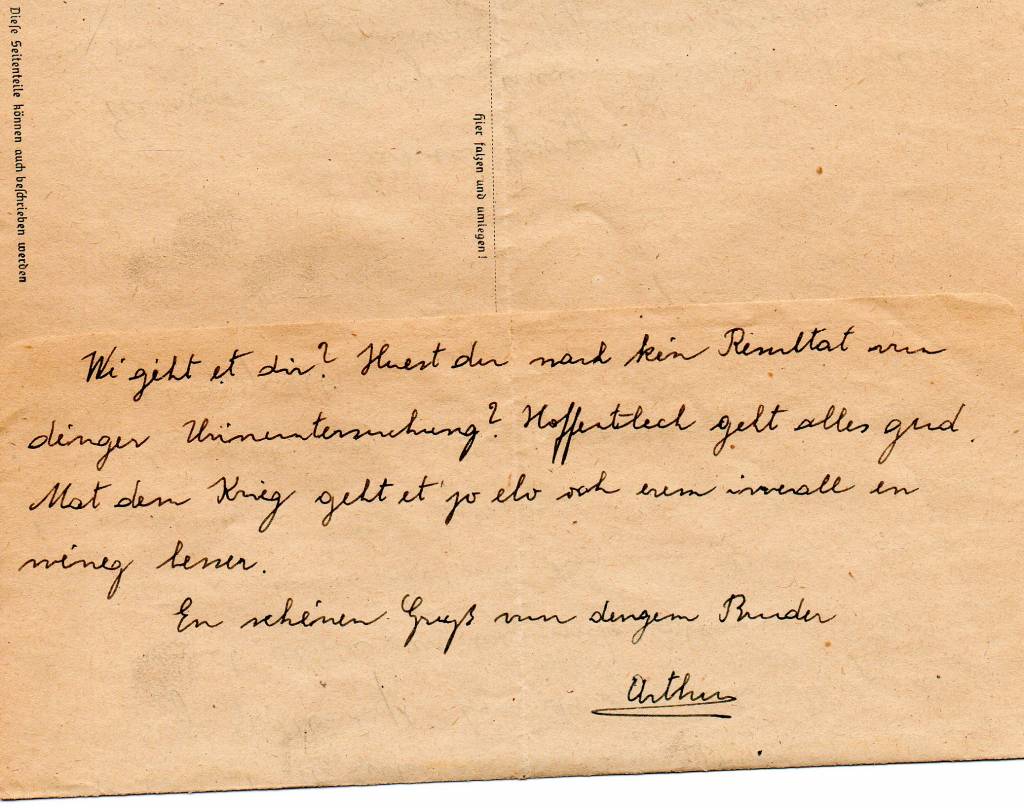 Diese Seitenteile können auch beschrieben werden
Hier falzen und umlegen!
Wi geht et dir? Huest du nach kein Resultat vun
denger Urinuntersuchung? Hoffentlech geht alles gud.
Mat dem Krieg geht et jo elo och erem iwerall en
wéineg besser.
En schéinen Gruß vun dengem Bruder
Arthur